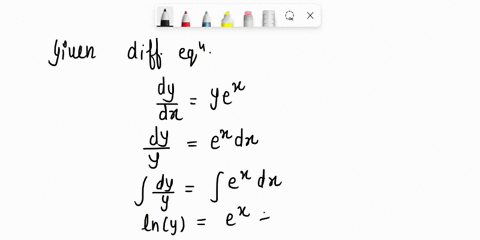 Given diff eqⁿ.
dy/dx = ye^x
dy/y = e^x dx
∫ dy/y = ∫ e^x dx
ln(y) = e^x